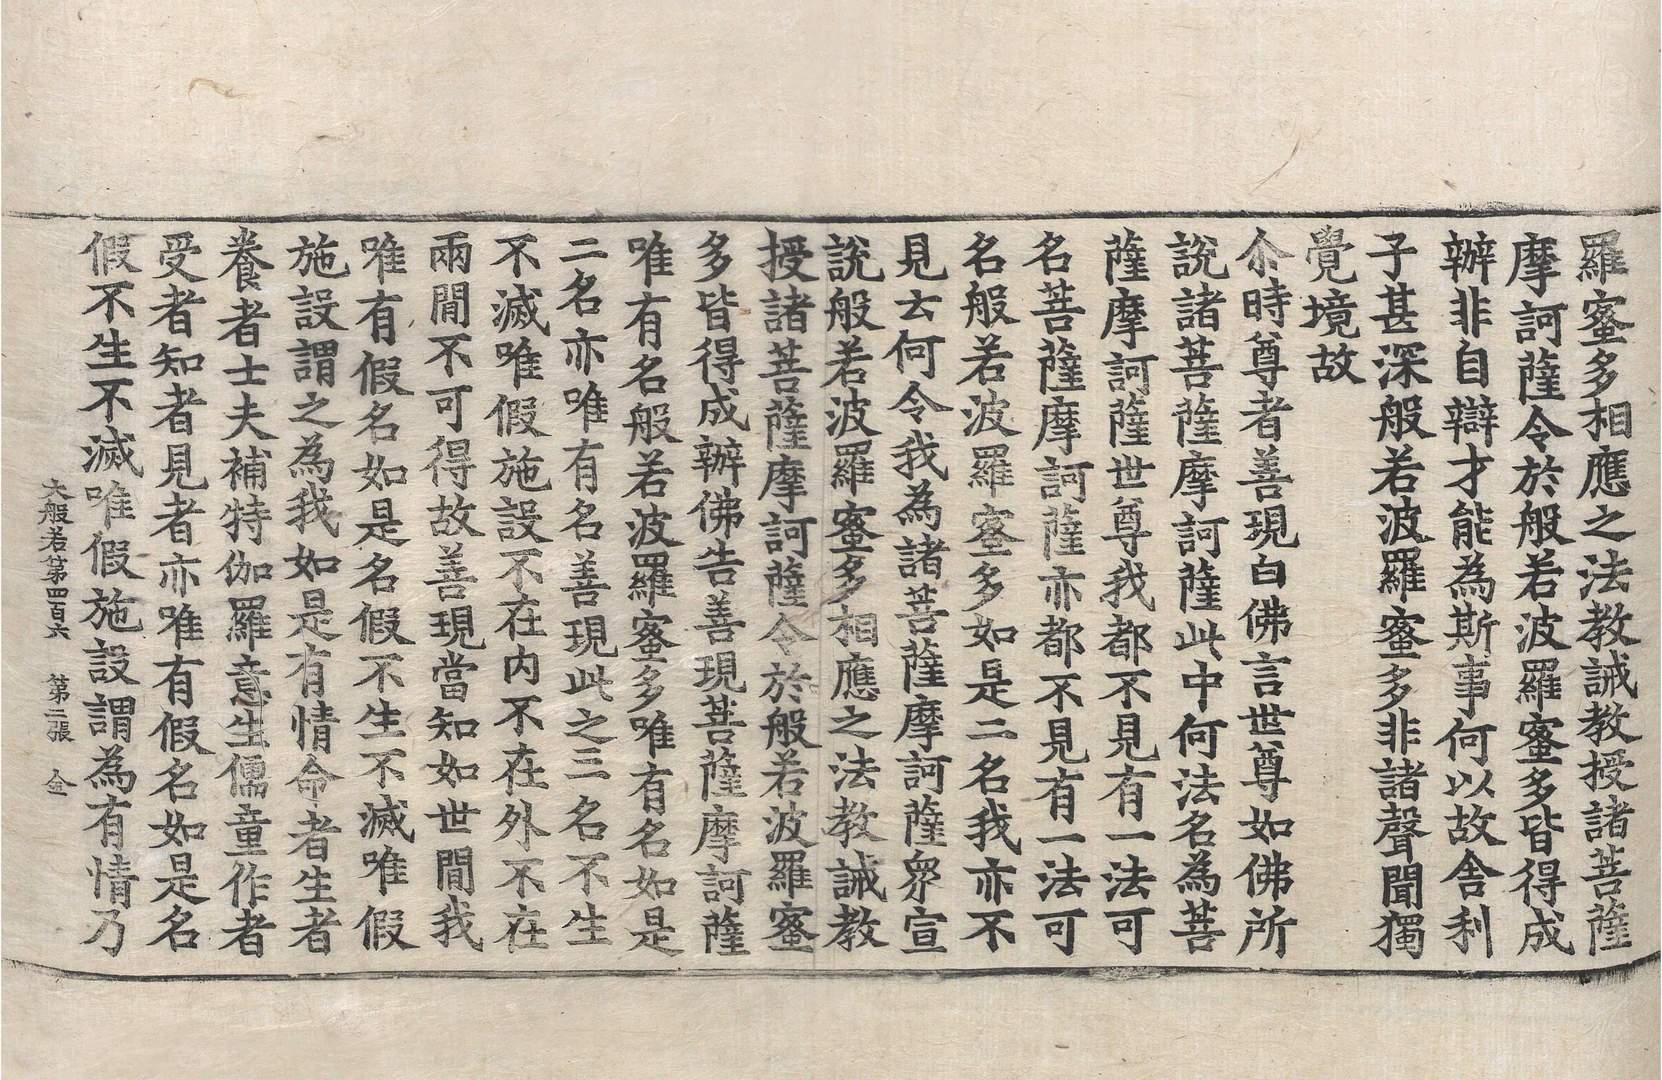 羅蜜多相應之法教誡教授諸菩薩
摩訶薩令於般若波羅蜜多皆得成
辦非自辯才能為斯事何以故舍利
子甚深般若波羅蜜多非諸聲聞獨
覺境故
尒時尊者善現白佛言世尊如佛所
說諸菩薩摩訶薩此中何法名為菩
薩摩訶薩世尊我都不見有一法可
名菩薩摩訶薩亦都不見有一法可
名般若波羅蜜多如是二名我亦不
見云何令我為諸菩薩摩訶薩衆宣
說般若波羅蜜多相應之法教誡教
授諸菩薩摩訶薩令於般若波羅蜜
多皆得成辦佛告善現菩薩摩訶薩
唯有名般若波羅蜜多唯有名如是
二名亦唯有名善現此之三名不生
不滅唯假施設不在內不在外不在
兩閒不可得故善現當知如世閒我
唯有假名如是名假不生不滅唯假
施設謂之為我如是有情命者生者
養者士夫補特伽羅意生儒童作者
受者知者見者亦唯有假名如是名
假不生不滅唯假施設謂為有情乃
大般若第四百六　第二張　金